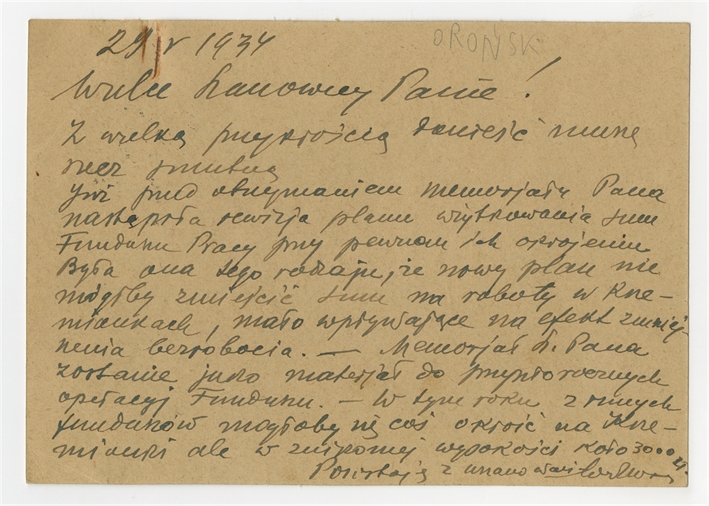 29 V 1934
OROŃSK
Wielce Szanowny Panie!
Z wielką przykrością donieść muszę
rzecz smutną
Już przed otrzymaniem memorjału Pana
nastąpiła rewizja planu użytkowania sum
Funduszu Pracy przy pewnem ich okrojeniu
Była ona tego rodzaju, że nowy plan nie
mógłby zmieścić sum na roboty w Krze-
mionkach, mało wpływające na efekt zmniej-
szenia bezrobocia. — Memorjał Sz. Pana
zostanie jako materjał do przyszłorocznych
operacyj Funduszu. — W tym roku z innych
funduszów mogłoby się coś okroić na Krze-
mionki ale w znikomej wysokości koło 3000 zł.
Pozostaję z